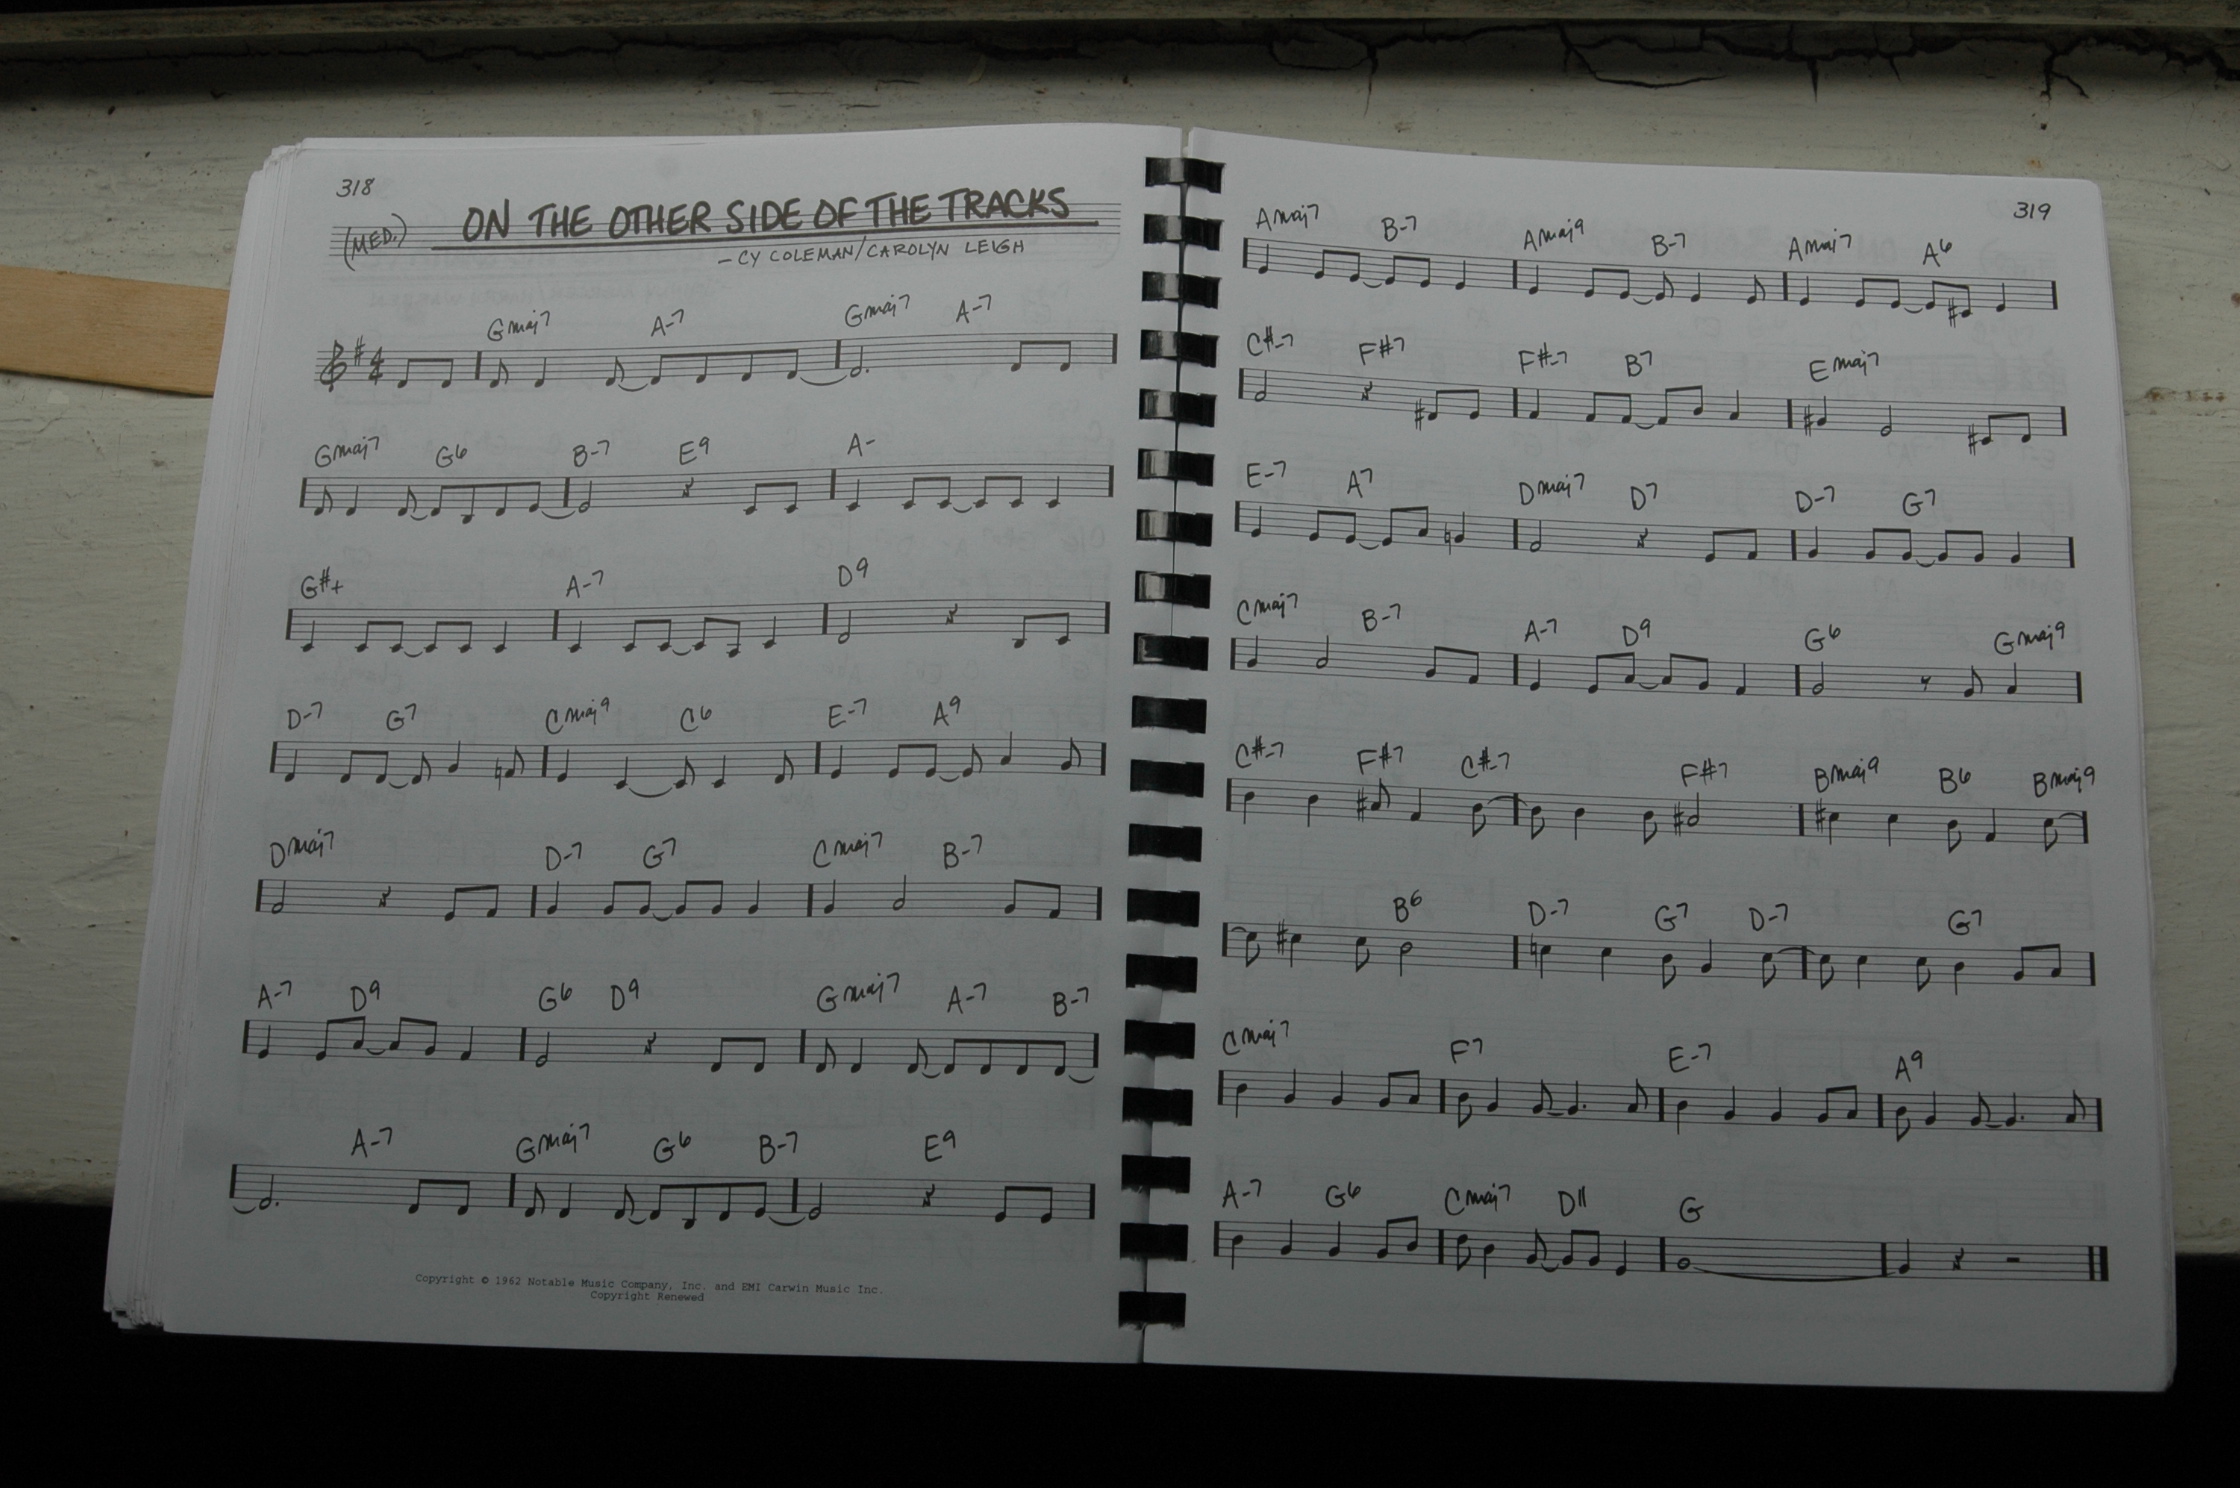 318
(MED.) ON THE OTHER SIDE OF THE TRACKS
- CY COLEMAN/CAROLYN LEIGH
Gmaj7 A-7 Gmaj7 A-7
4
4
Gmaj7 G6 B-7 E9 A-
G#+ A-7 D9
D-7 G7 Cmaj9 C6 E-7 A9
Dmaj7 D-7 G7 Cmaj7 B-7
A-7 D9 G6 D9 Gmaj7 A-7 B-7
A-7 Gmaj7 G6 B-7 E9
Copyright © 1962 Notable Music Company, Inc. and EMI Carwin Music Inc.
Copyright Renewed
319
Amaj7 B-7 Amaj9 B-7 Amaj7 A6
C#-7 F#7 F#-7 B7 Emaj7
E-7 A7 Dmaj7 D7 D-7 G7
Cmaj7 B-7 A-7 D9 G6 Gmaj9
C#-7 F#7 C#-7 F#7 Bmaj9 B6 Bmaj9
B6 D-7 G7 D-7 G7
Cmaj7 F7 E-7 A9
A-7 G6 Cmaj7 D11 G